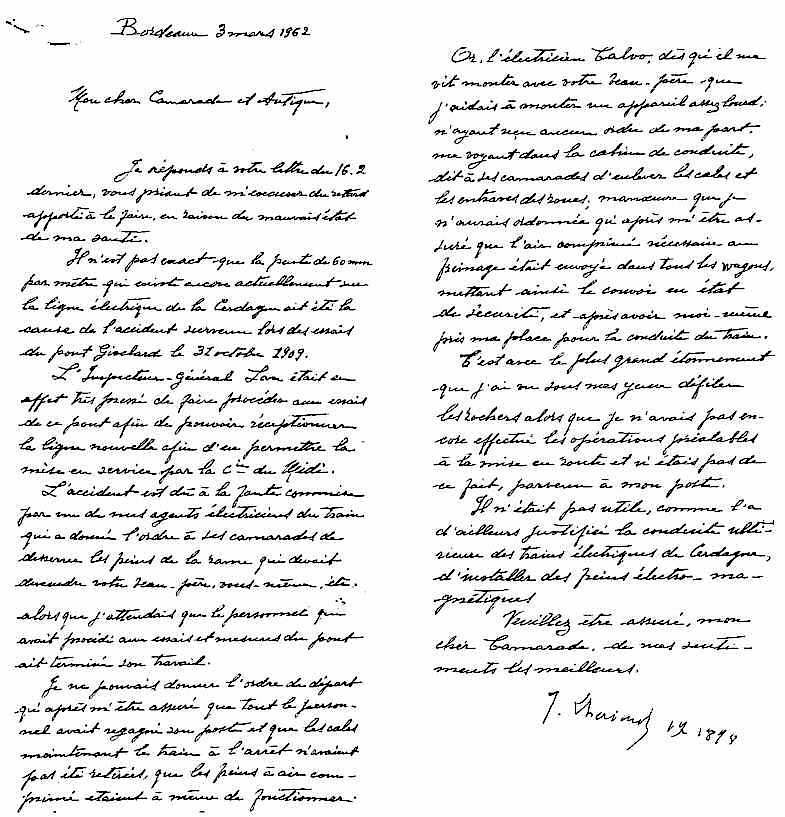 Bordeaux 3 mars 1962
Mon cher Camarade et Antique,
Je réponds à votre lettre du 16.2
dernier, vous priant de m'excuser du retard
apporté à le faire, en raison du mauvais état
de ma santé.
Il n'est pas exact que la pente de 60 mm
par mètre qui existe encore actuellement sur
la ligne électrique de la Cerdagne ait été la
cause de l'accident survenu lors des essais
du pont Gisclard le 31 octobre 1909.
L'Inspecteur-Général était en
effet très pressé de faire procéder aux essais
de ce pont afin de pouvoir réceptionner
la ligne nouvelle afin d'en permettre la
mise en service par la Cie du Midi.
L'accident est dû à la faute commise
par un de mes agents électriciens du train
qui a donné l'ordre à ses camarades de
desserrer les freins de la rame qui devait
descendre votre beau-père, vous-même, etc.
alors que j'attendais que le personnel qui
avait procédé aux essais et mesures du pont
ait terminé son travail.
Je ne pouvais donner l'ordre de départ
qu'après m'être assuré que tout le person-
nel avait regagné son poste et que les cales
maintenant le train à l'arrêt n'avaient
pas été retirées, que les freins à air com-
primé étaient à même de fonctionner.
Or, l'électricien Calvo, dès qu'il me
vit monter avec votre beau-père que
j'aidais à monter un appareil assez lourd;
n'ayant reçu aucun ordre de ma part.
me voyant dans la cabine de conduite,
dit à ses camarades d'enlever les cales et
les entraves des roues, manœuvre que je
n'aurais ordonnée qu'après m'être as-
suré que l'air comprimé nécessaire au
freinage était envoyé dans tous les wagons,
mettant ainsi le convoi en état
de sécurité, et après avoir moi-même
pris ma place pour la conduite du train.
C'est avec le plus grand étonnement
que j'ai vu sous mes yeux défiler
les rochers alors que je n'avais pas en-
core effectué les opérations préalables
à la mise en route et n'étais pas de
ce fait, parvenu à mon poste.
Il n'était pas utile, comme l'a
d'ailleurs justifié la conduite ulté-
rieure des trains électriques de Cerdagne,
d'installer des freins électro-ma-
gnétiques
Veuillez être assuré, mon
cher Camarade, de mes senti-
ments les meilleurs.
J.